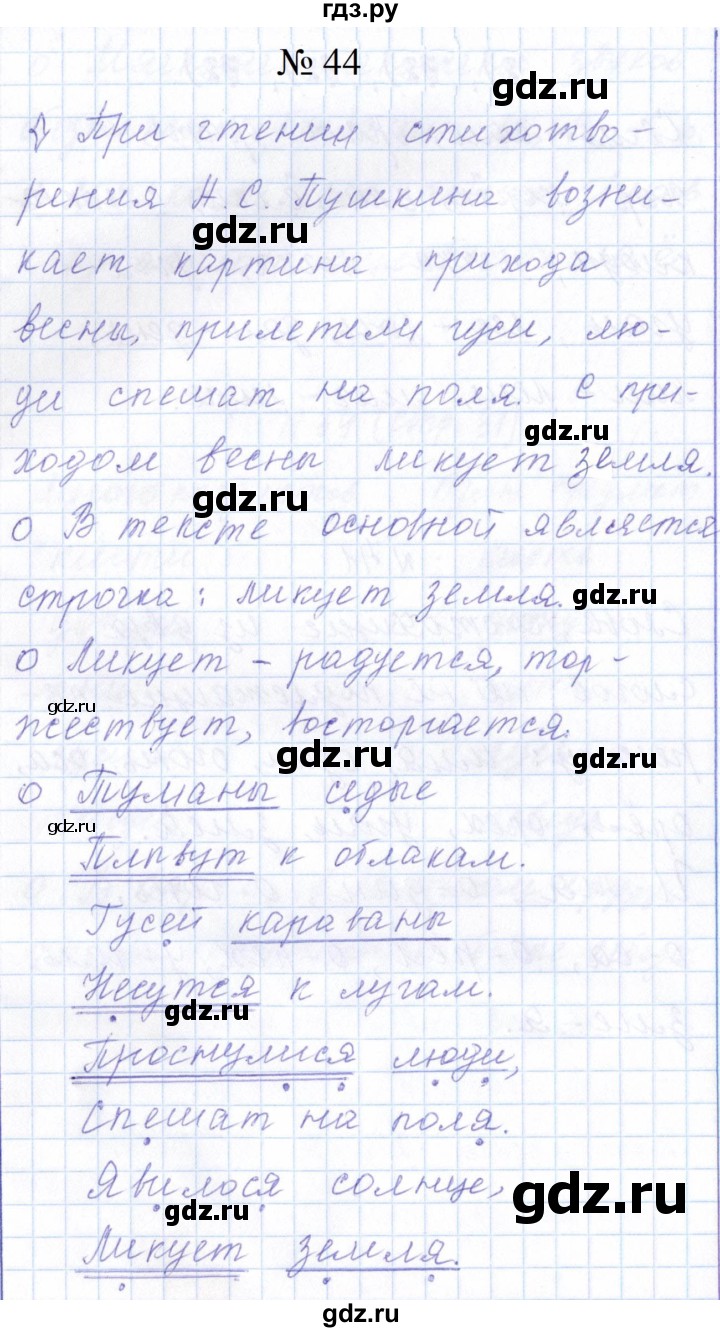 гдз.ру
№ 44
gdz.ru
При чтении стихотво-
рения А. С. Пушкина возни-
gdz.ru
кает картина прихода
весны, прилетели гуси, лю-
ди спешат на поля. С при-
gdz.ru
ходом весны ликует земля.
gdz.ru
О В тексте основной является
строчка: ликует земля.
gdz.ru
О Ликует – радуется, тор-
gdz.ru
жествует, восторгается.
gdz.ru
О Туманы седые
gdz.ru
Плывут к облакам.
Гусей караваны
Несутся к лугам.
gdz.ru
Проснулися люди,
Спешат на поля.
Явилося солнце,
gdz.ru
gdz.ru
Ликует земля.
gdz.ru